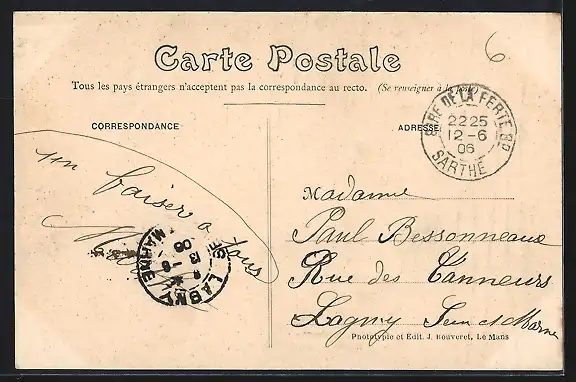 6
Carte Postale
Tous les pays étrangers n'acceptent pas la correspondance au recto. (Se renseigner à la Poste)
CORRESPONDANCE
un baiser a tous
ADRESSE
GARE DE LA FERTE BD
2225
12-6
06
SARTHE
Madame
Paul Bessonneaux
Rue des Tanneurs
Lagny Sein et Marne
LAGNY
13-6
06
MARNE
Phototypie et Edit. J. Bouveret, Le Mans